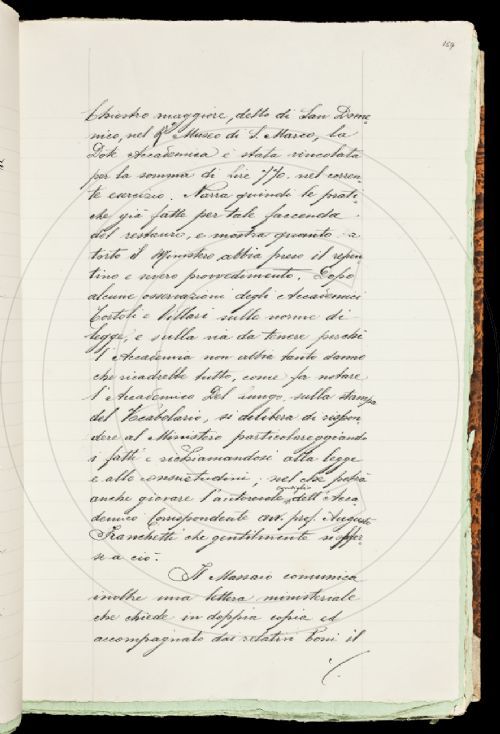 169
Chiostro maggiore, detto di San Dome-
nico, nel R.º Museo di S. Marco, la
Dote Accademica è stata vincolata
per la somma di Lire 770. nel corren-
te esercizio. Narra quindi le prati-
che già fatte per tale faccenda
del restauro, e mostra quanto a
torto il Ministero abbia preso il repen-
tino e severo provvedimento. Dopo
alcune osservazioni degli Accademici
Tortoli e Villari sulle norme di
legge, e sulla via da tenere perché
l'Accademia non abbia tanto danno
che ricadrebbe tutto, come fa notare
l'Accademico Del Lungo, sulla stampa
del Vocabolario, si delibera di rispon-
dere al Ministero particolareggiando
i fatti e richiamandosi alla legge
e alle consuetudini; nel che potrà
anche giovare l'autorevole consiglio dell'Acca-
demico Corrispondente avv. prof. Augusto
Franchetti che gentilmente si offer-
se a ciò.
Il Massaio comunica
inoltre una lettera ministeriale
che chiede in doppia copia ed
accompagnato dai relativi Boni il